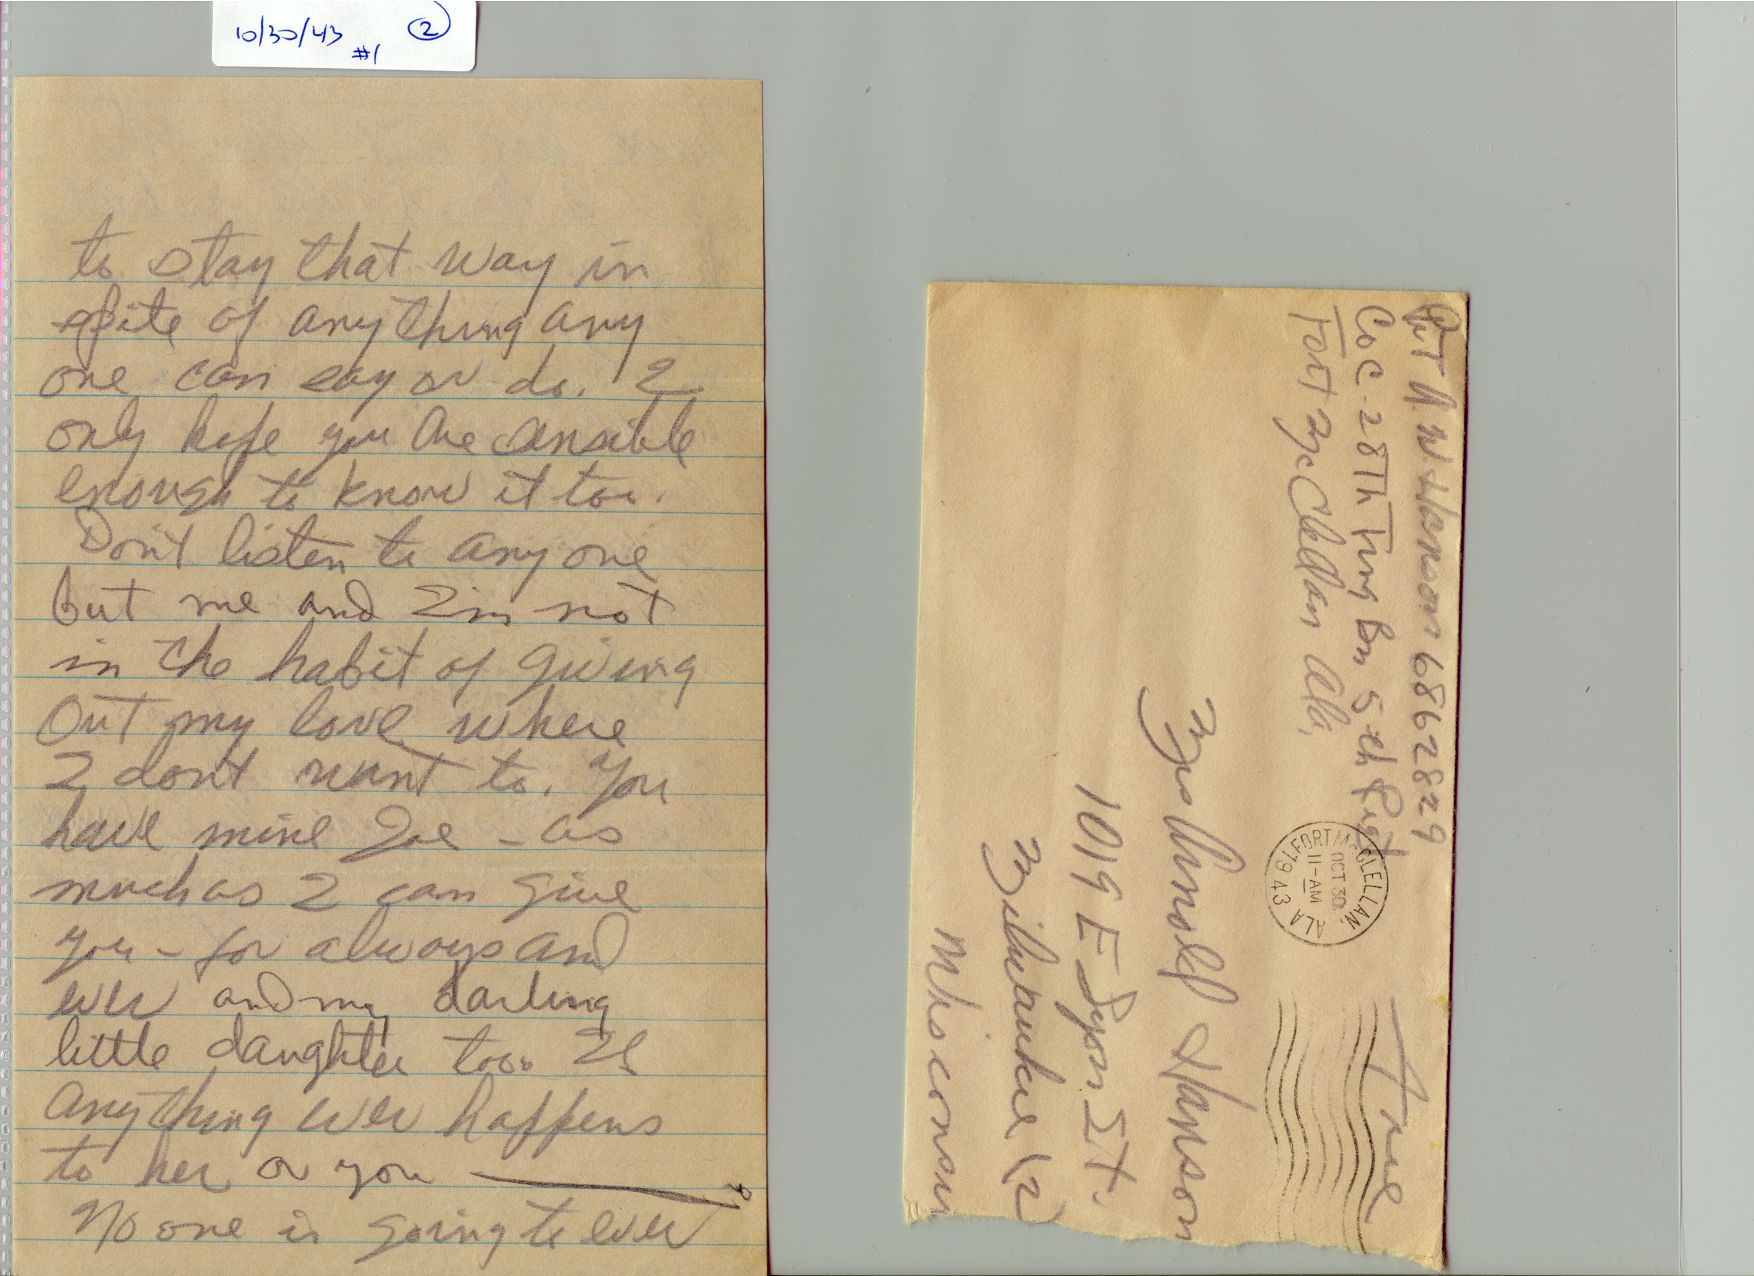 10/30/43 2
#1
to stay that way in
spite of anything any
one can say or do. I
only hope you are sensible
enough to know it too.
Don't listen to any one
but me and I'm not
in the habit of giving
out my love where
I dont want to. You
have mine Zoe - as
much as I can give
you - for always and
ever and my darling
little daughter too. If
anything ever happens
to her or you
No one is going to ever
Pvt A. W Hanson 6862829
Co C. 28Th Trng Bn 5th Rgt
Fort McClellan Ala.
Free
FORT McCLELLAN
OCT 30
11-AM
1943
ALA
Mrs Arnold Hanson
1019 E Lyon St.
Milwaukee (2)
Wisconsin